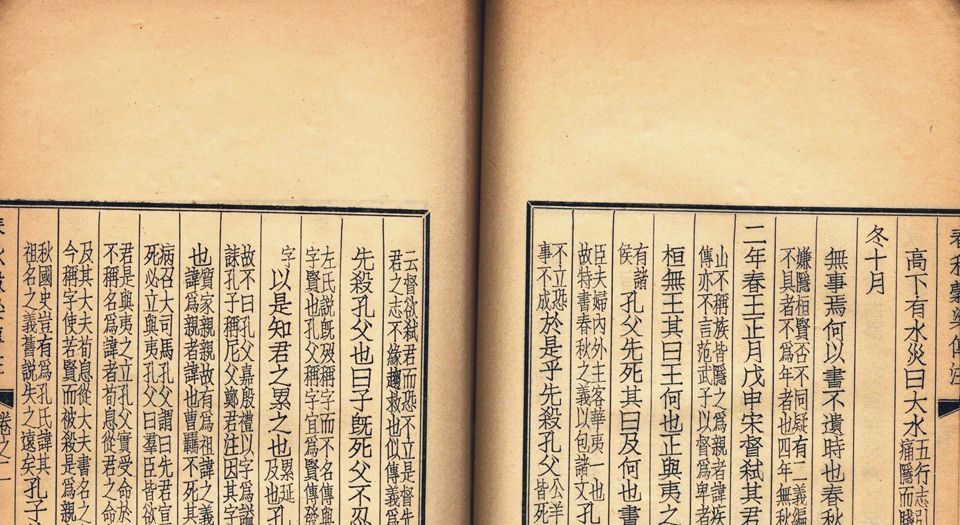 春秋穀梁傳注
高下有水災曰大水
五行志引
痛隱而賤
冬十月
無事焉何以書不遺時也春秋
嫌隱桓賢否不同疑有二義編
不具者不為年者也四年無秋
二年春王正月戊申宋督弒其君
山不稱族皆隱之為親者諱疾
傳亦不言范武子以督為卑者
桓無王其曰王何也正與夷之
有諸
侯
孔父先死其曰及何也書
臣夫婦內外主客華夷一也
故特書春秋之義以包諸文孔
不立恐
事不成
於是乎先殺孔父
公羊
皆死
云督欲弒君而恐不立是督先
君之志不緣趨救也似傳義為
先殺孔父也曰子既死父不忍
左氏說既歿稱字而不名傳與
字賢也孔父稱字宜為賢傳發
字
以是知君之累之也
累延
及也孔
故不曰孔父嘉殷禮以字為謚
誄孔子稱尼父鄭君注因其字
也
質家親親故有為祖諱之義
諱為親者諱也曹羈不死其
病召大司馬孔父謂曰先君宣
死必立與夷孔父曰羣臣皆欲
君是與夷之立孔父實受命於
不稱名為諱者荀息從君之命
及其大夫荀息從大夫書名之
今稱字使若賢而被殺是為親
秋國史豈有為孔氏諱其
祖名之義舊說失之遠矣
孔子
卷之二